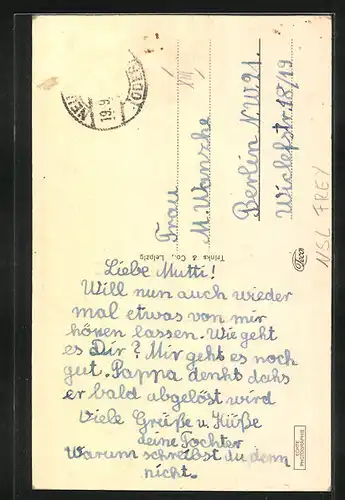 Liebe Mutti!
Will nun auch wieder
mal etwas von mir
hören lassen. Wie geht
es Dir? Mir gehts noch
gut. Pappa denkt dahs
er bald abgelöst wird
Viele Grüße u. Küße
deine Tochter
Warum schreibst du denn
nicht.
Frau
M. Wanzke
Berlin N.W.21.
Wiclefstr. 18/19
Trinks & Co., Leipzig
NSL FREY
19.9.
ECHTE
PHOTOGRAPHIE